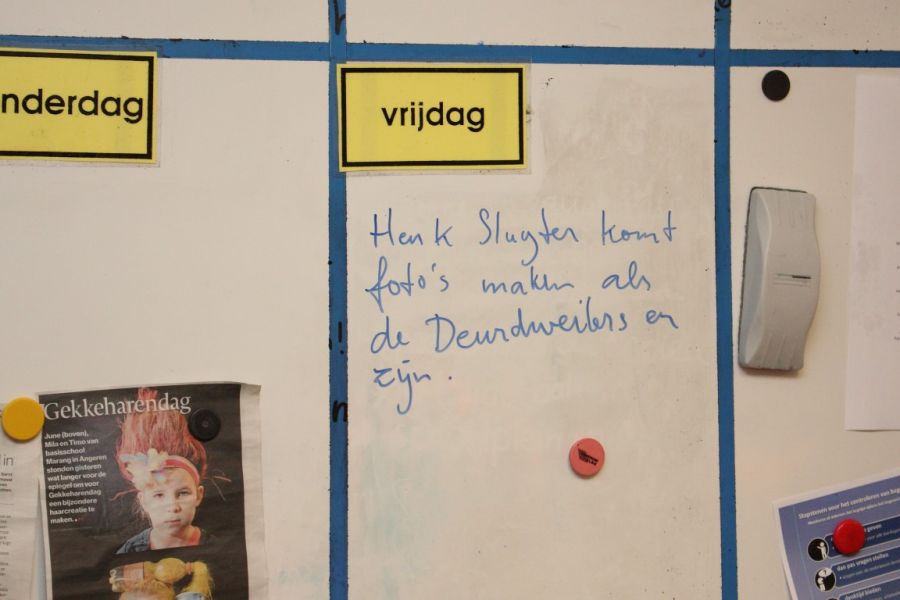 nderdag
vrijdag
Henk Slugter komt
foto's maken als
de Deurdweilers er
zijn.
Gekkeharendag
June (boven),
Mila en Timo van
basisschool
Marang in Angeren
stonden gisteren
wat langer voor de
spiegel om voor
Gekkeharendag
een bijzondere
haarcreatie te
maken.
Stapstenen voor het controleren van
geven
dan pas vragen stellen
denktijd bieden